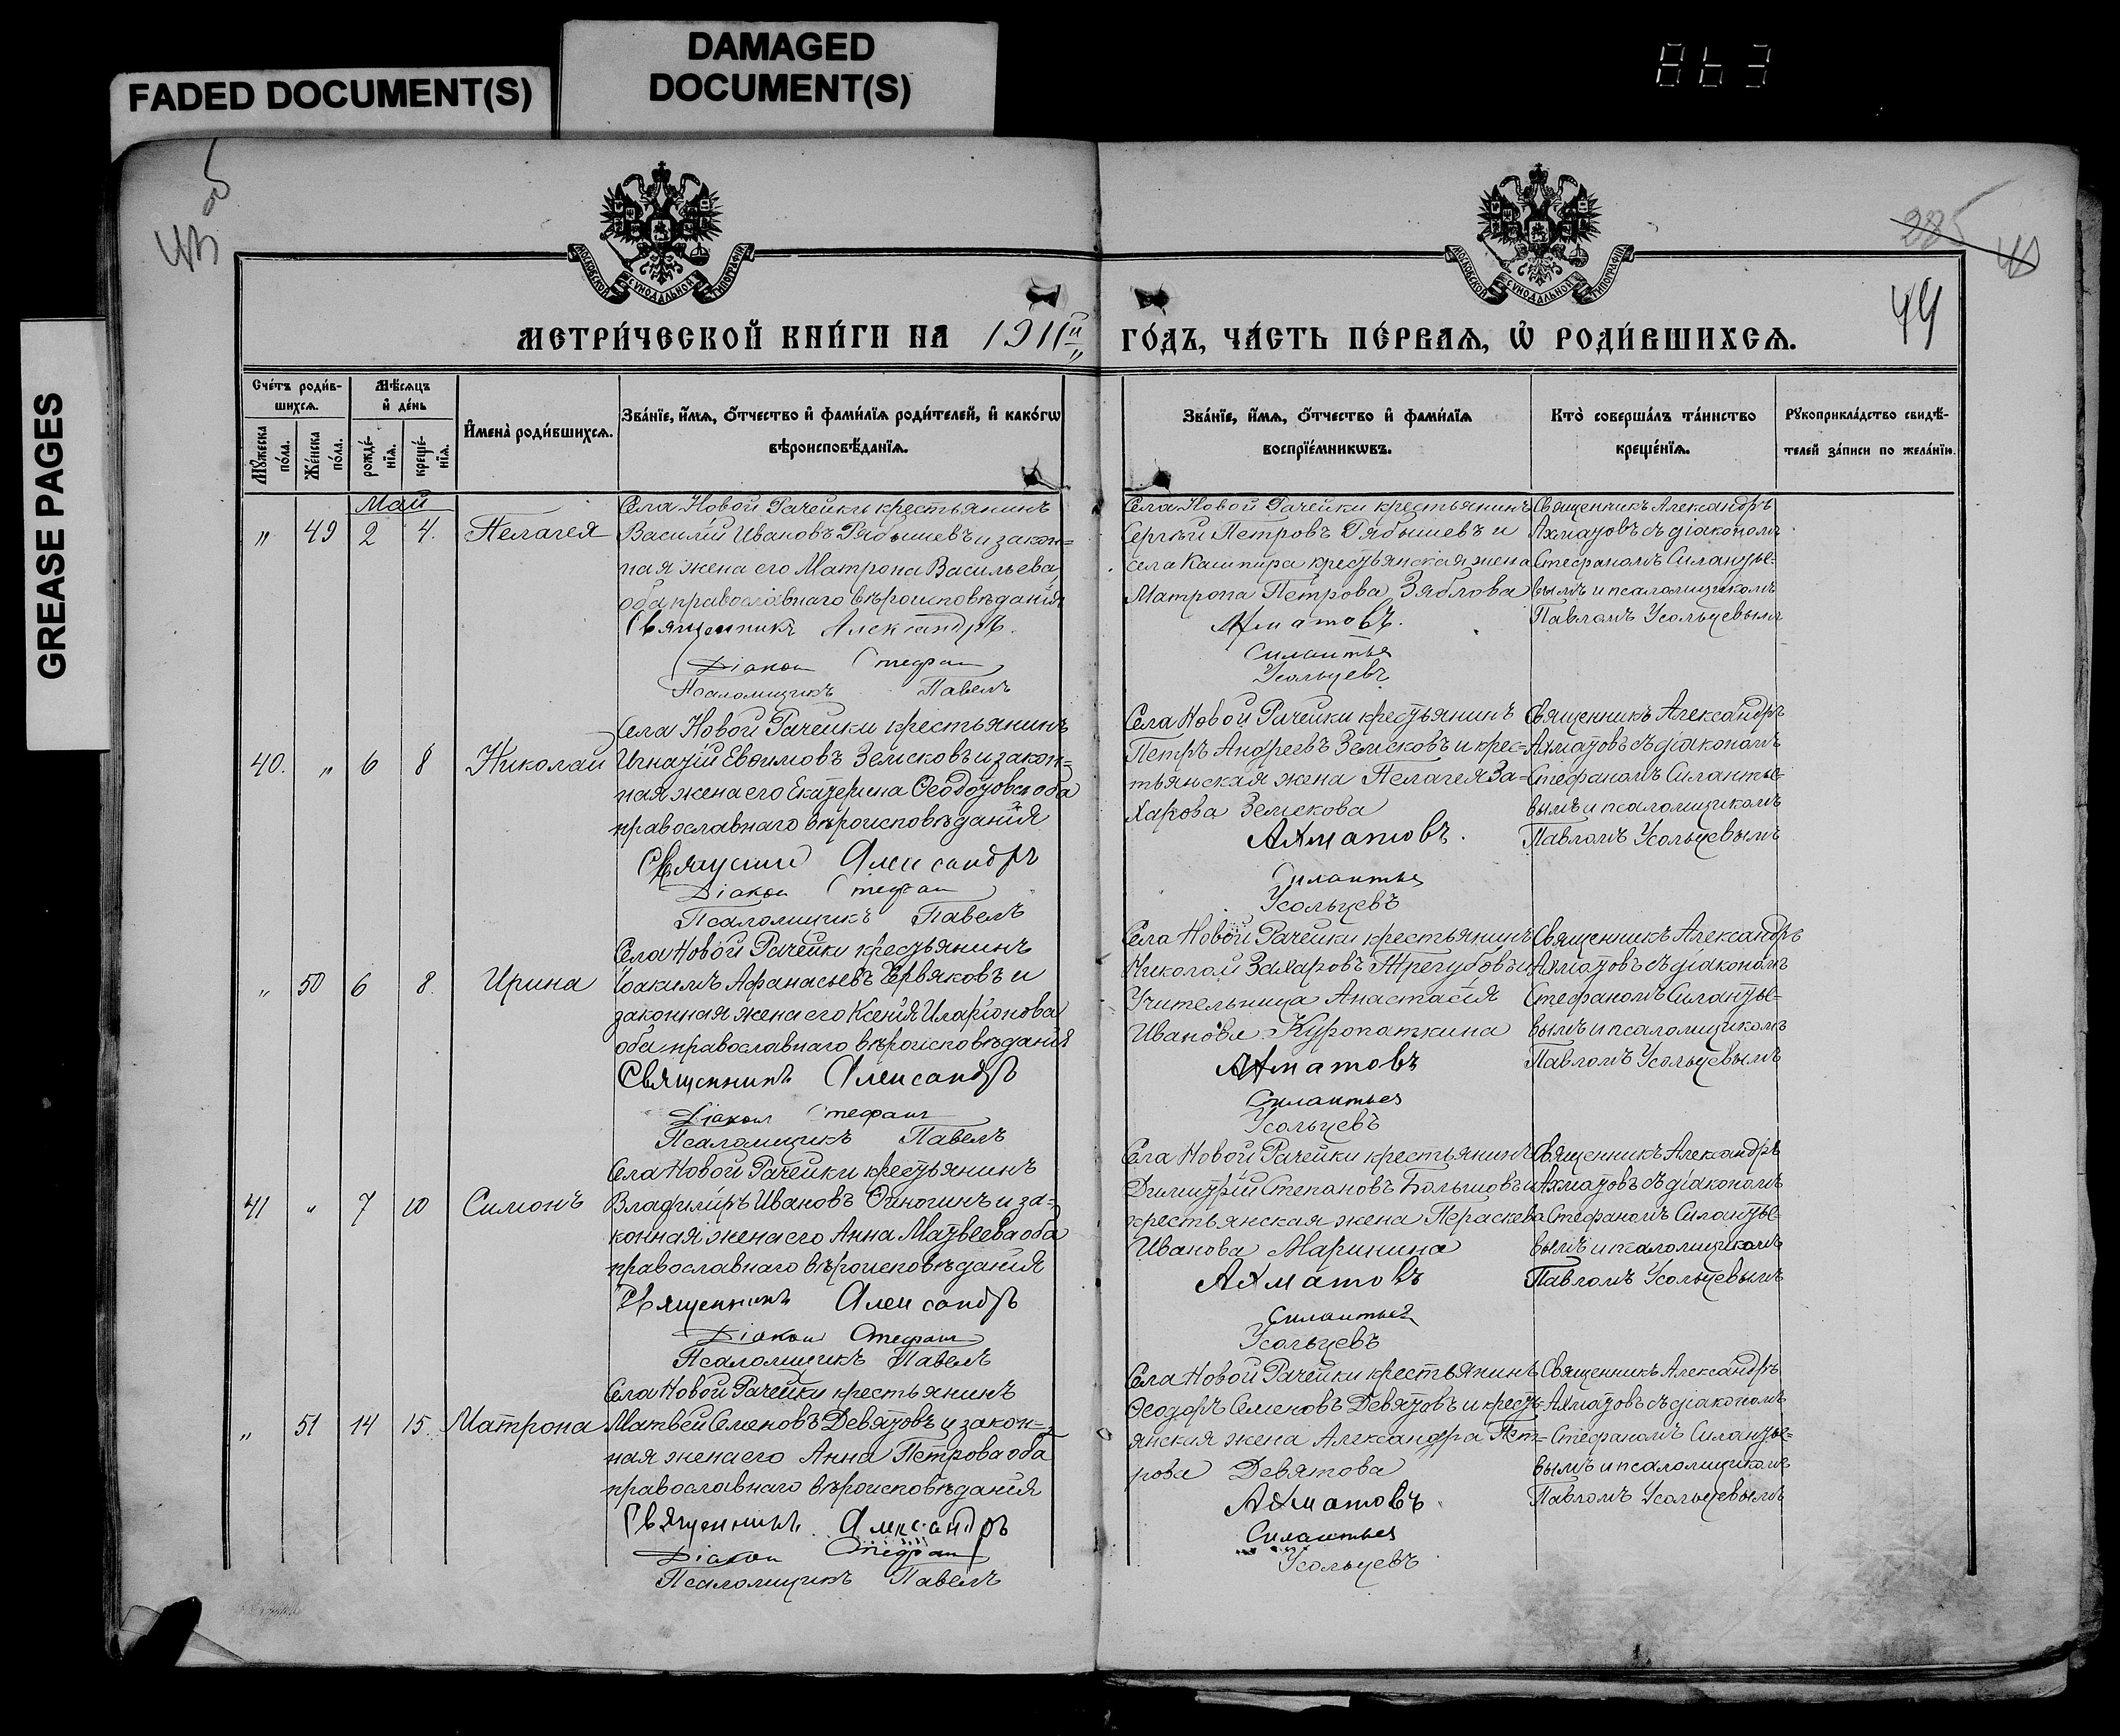 FADED DOCUMENT(S)
DAMAGED
DOCUMENT(S)
GREASE PAGES
863
285
49
МОСКОВСКОЙ СѴНОДАЛЬНОЙ ТИПОГРАФІИ
МОСКОВСКОЙ СѴНОДАЛЬНОЙ ТИПОГРАФІИ
МЕТРИ́ЧЕСКОЙ КНИ́ГИ НА 1911й ГО́ДЪ, ЧА́СТЬ ПЕ́РВАѦ, Ѡ҆ РОДИ́ВШИХСѦ.
Сче́тъ роди́в-
шихсѧ.
Мꙋ́жеска
по́ла.
Же́нска
по́ла.
Мѣ́сѧцъ
и҆ де́нь
рожде́-
нїѧ.
креще́-
нїѧ.
И҆мена̀ роди́вшихсѧ.
Зва́нїе, и҆́мѧ, ѻ҆́тчество и҆ фами́лїѧ роди́телей, и҆ како́гѡ
вѣроисповѣ́данїѧ.
Зва́нїе, и҆́мѧ, ѻ҆́тчество и҆ фами́лїѧ
воспрїе́мникѡвъ.
Кто̀ соверша́лъ та́инство
креще́нїѧ.
Рꙋкоприкла́дство свидѣ́-
телей за́писи по жела́нїю.
Май
" 49 2 4. Пелагея
Села Новой Рачейки крестьянинъ
Василій Ивановъ Рябышевъ и закон=
ная жена его Матрона Васильева,
оба православнаго вѣроисповѣданія
Священникъ Александръ.
Діакон Стефан
Псаломщикъ Павелъ
Села Новой Рачейки крестьянинъ
Сергѣй Петровъ Рябышевъ и
села Кашпира крестьянская жена
Матрона Петрова Зяблова
Ахматовъ.
Силантьев
Усольцевъ
Священникъ Александръ
Ахматовъ съ діакономъ
Стефаномъ Силантье-
вымъ и псаломщикомъ
Павломъ Усольцевымъ
40. " 6 8 Николай
Села Новой Рачейки крестьянинъ
Игнатій Евѳимовъ Земсковъ и закон=
ная жена его Екатерина Ѳеодотова оба
православнаго вѣроисповѣданія
Священник Александръ
Діакон Стефан
Псаломщикъ Павелъ
Села Новой Рачейки крестьянинъ
Петръ Андреевъ Земсковъ и крес=
тьянская жена Пелагея За=
харова Земскова
Ахматовъ.
Силантьев
Усольцевъ
Священникъ Александръ
Ахматовъ съ діакономъ
Стефаномъ Силантье-
вымъ и псаломщикомъ
Павломъ Усольцевымъ
" 50 6 8. Ирина
Села Новой Рачейки крестьянинъ
Іоакимъ Афанасьевъ Червяковъ и
законная жена его Ксенія Иларіонова
оба православнаго вѣроисповѣданія
Священникъ Александръ
Діакон Стефанъ
Псаломщикъ Павелъ
Села Новой Рачейки крестьянинъ
Николай Захаровъ Трегубовъ и
Учительница Анастасія
Иванова Куропаткина
Ахматовъ
Силантьев
Усольцевъ
Священникъ Александръ
Ахматовъ съ діакономъ
Стефаномъ Силантье=
вымъ и псаломщикомъ
Павломъ Усольцевымъ
41 " 7 10 Симонъ
Села Новой Рачейки крестьянинъ
Владиміръ Ивановъ и за=
конная жена его Анна Матвеева оба
православнаго вѣроисповѣданія
Священникъ Александръ
Діакон Стефан
Псаломщикъ Павелъ
Села Новой Рачейки крестьянинъ
Димитрій Степановъ Большовъ и
крестьянская жена Параскева
Иванова Маринина
Ахматовъ
Силантьев
Усольцевъ
Священникъ Александръ
Ахматовъ съ діакономъ
Стефаномъ Силантье-
вымъ и псаломщикомъ
Павломъ Усольцевымъ
" 51 14 15. Матрона
Села Новой Рачейки крестьянинъ
Матвей Семеновъ Девятовъ и закон=
ная жена его Анна Петрова оба
православнаго вѣроисповѣданія
Священникъ Александръ
Діакон Стефан
Псаломщикъ Павелъ
Села Новой Рачейки крестьянинъ
Ѳеодоръ Семеновъ Девятовъ и кресть-
янская жена Александра Пет=
рова Девятова
Ахматовъ
Силантьев
Усольцевъ
Священникъ Александръ
Ахматовъ съ діакономъ
Стефаномъ Силантье=
вымъ и псаломщикомъ
Павломъ Усольцевымъ